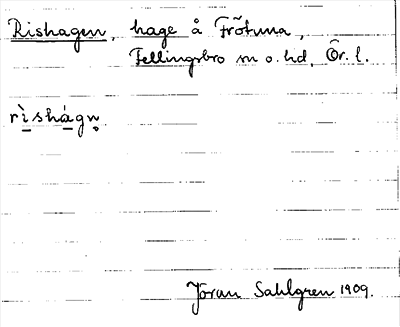 Rishagen, hage å Frötuna,
Fellingsbro sn o. hd, Ör. l.
rìshágn̥.
Jöran Sahlgren 1909.